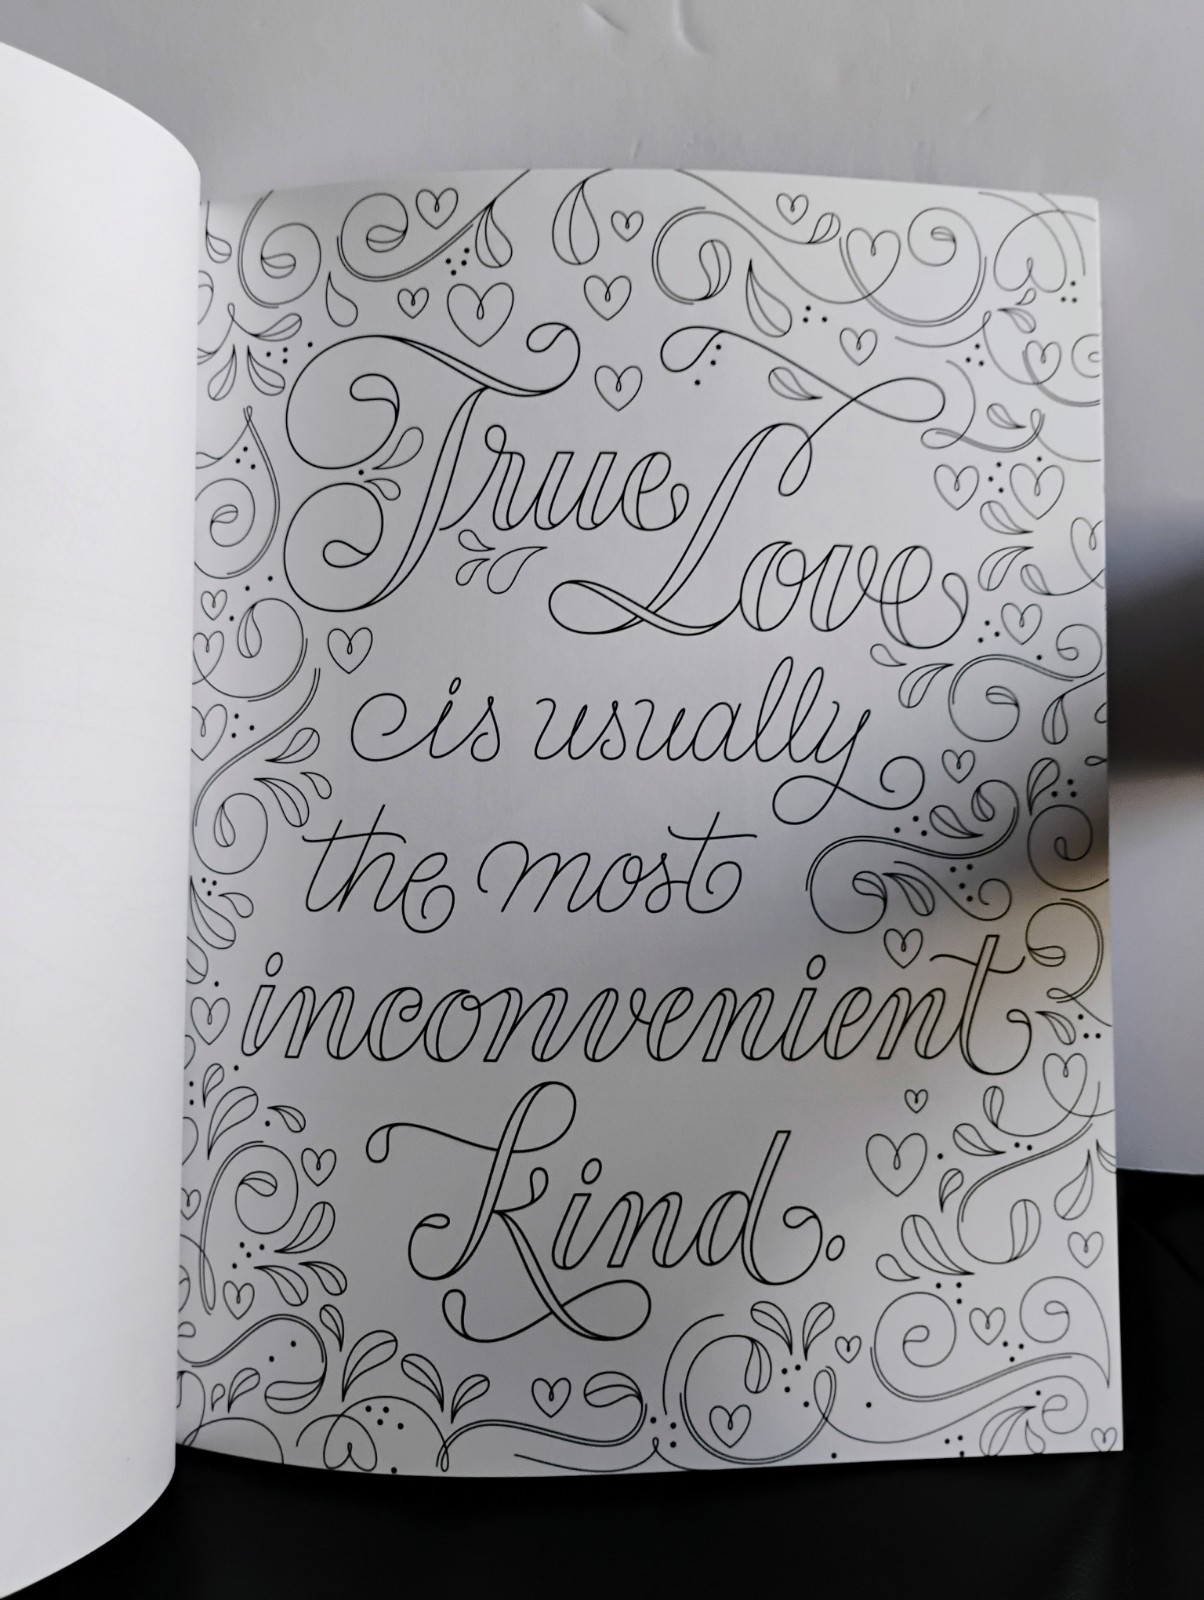 True Love
is usually
the most
inconvenient
kind.